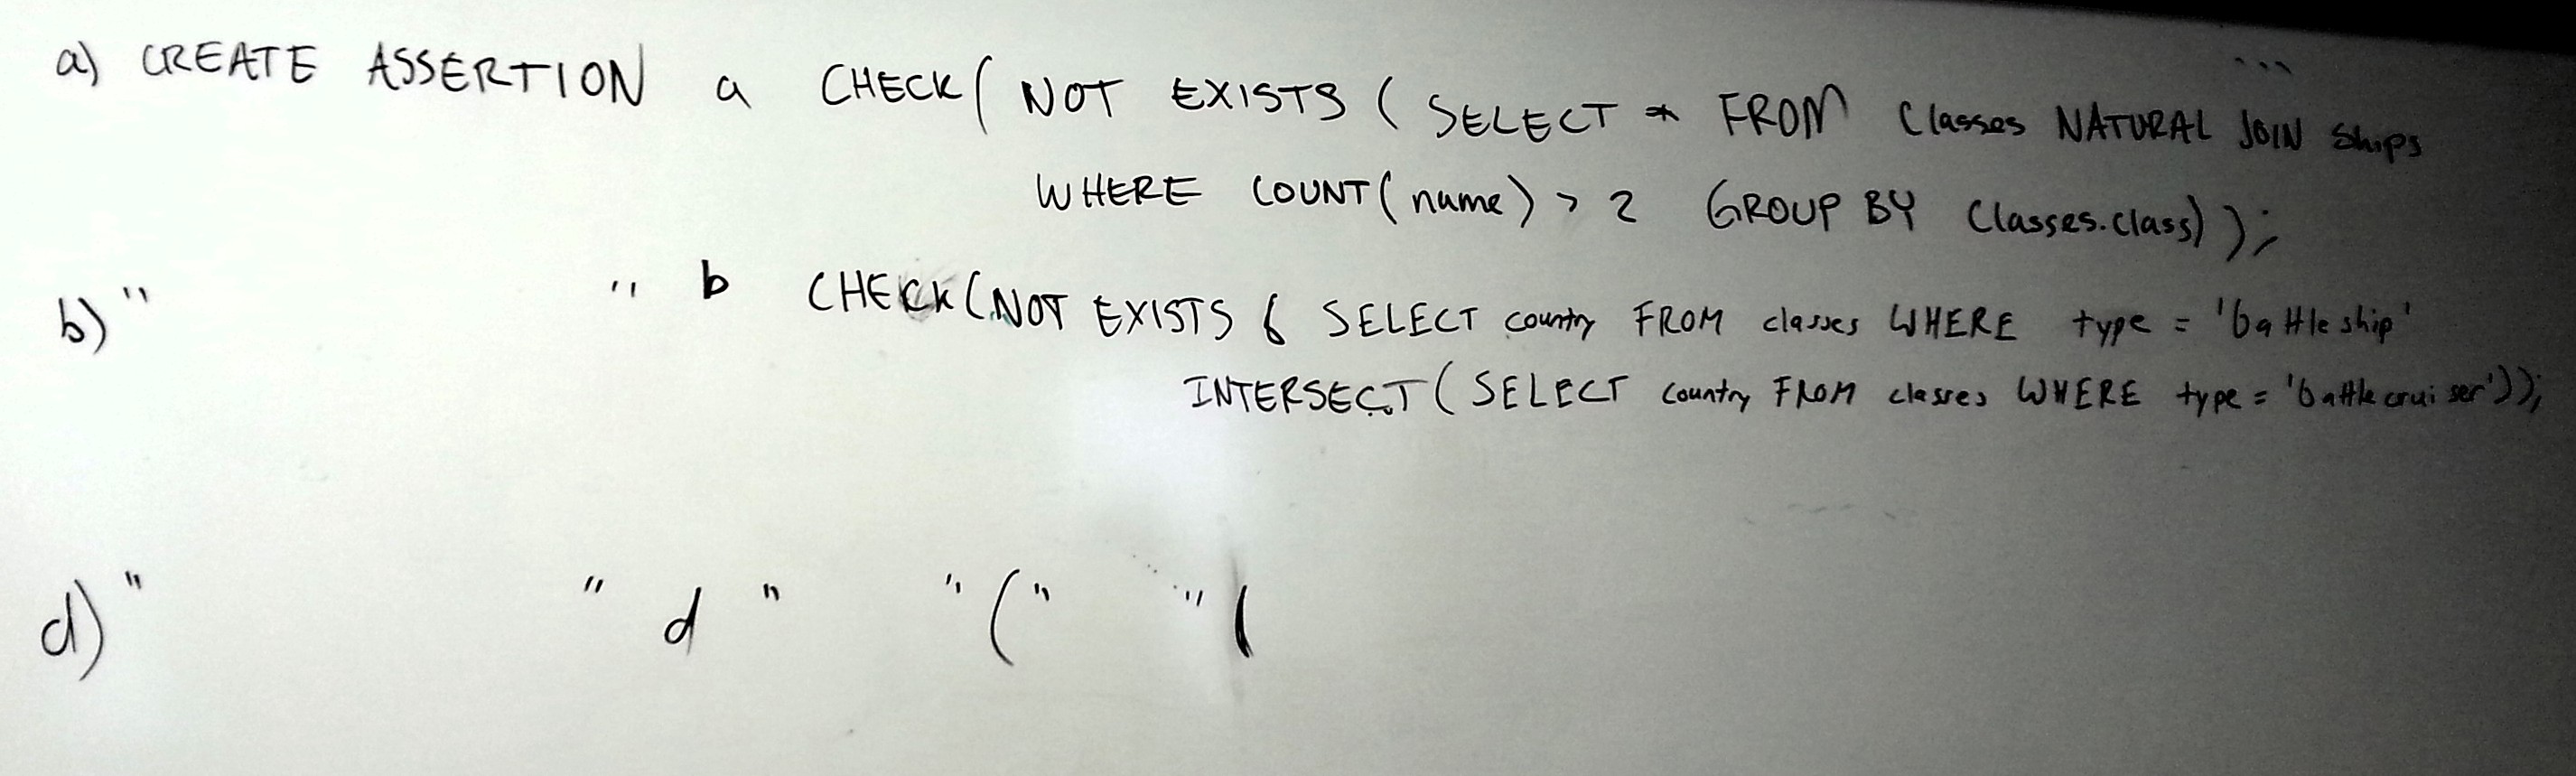 a) CREATE ASSERTION a CHECK( NOT EXISTS ( SELECT * FROM Classes NATURAL JOIN Ships
WHERE COUNT(name) > 2 GROUP BY Classes.class) );
b) " " b CHECK(NOT EXISTS ( SELECT country FROM classes WHERE type = 'battleship'
INTERSECT (SELECT country FROM classes WHERE type = 'battlecruiser'));
d) " " d " " ( " " (